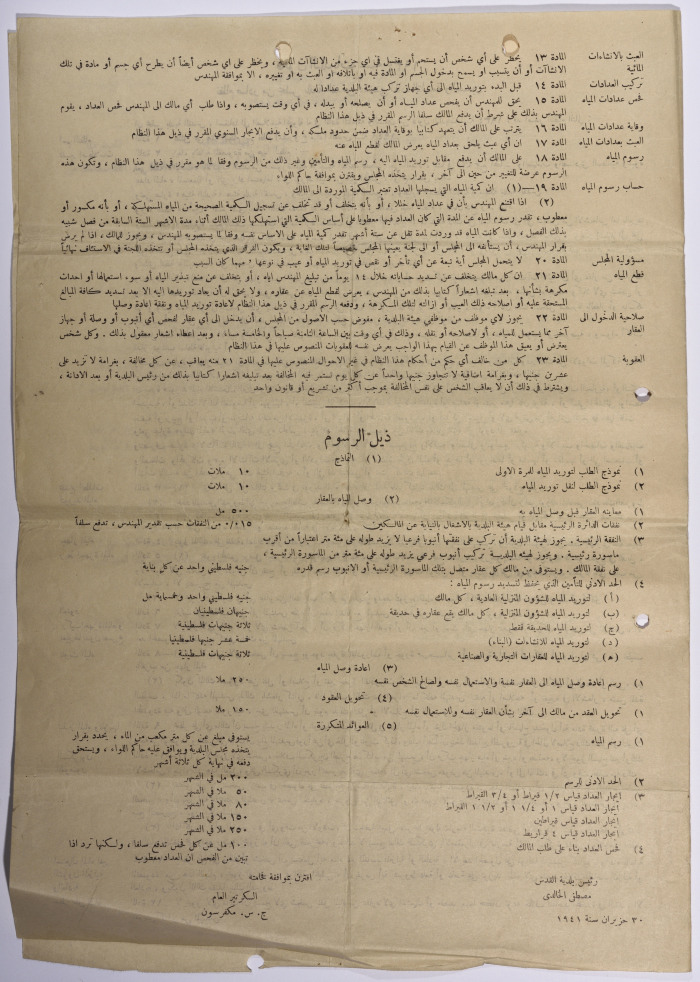 العبث بالانشاءات المائية
المادة ١٣ يحظر على أي شخص أن يستحم أو يغتسل في أي جزء من الانشاآت المائية ، ويحظر على اي شخص أيضاً أن يطرح أي جسم أو مادة في تلك
الانشاآت أو أن يتسبب او يسمح بدخول الجسم او المادة فيه او باتلافه او العبث به او تغييره ، الا بموافقة المهندس
تركيب العدادات
المادة ١٤ قبل البدء بتوريد المياه الى أي جهاز تركب هيئة البلدية عدادا له
فحص عدادات المياه
المادة ١٥ يحق للمهندس أن يفحص عداد المياه أو أن يصلحه أو يبدله ، في أي وقت يستصوبه ، واذا طلب أي مالك الى المهندس فحص العداد ، يقوم
المهندس بذلك على شرط أن يدفع المالك سلفا الرسم المقرر في ذيل هذا النظام
وقاية عدادات المياه
المادة ١٦ يترتب على المالك أن يتعهد كتابيا بوقاية العداد ضمن حدود ملكه ، وأن يدفع الايجار السنوي المقرر في ذيل هذا النظام
العبث بعدادات المياه
المادة ١٧ ان أي عبث يلحق بعداد المياه يعرض المالك لقطع المياه عنه
رسوم المياه
المادة ١٨ على المالك أن يدفع مقابل توريد المياه اليه ، رسم المياه والتأمين وغير ذلك من الرسوم وفقا لما هو مقرر في ذيل هذا النظام ، وتكون هذه
الرسوم عرضة للتغيير من حين الى آخر ، بقرار يتخذه المجلس ويقترن بموافقة حاكم اللواء
حساب رسوم المياه
المادة ١٩—(١) ان كمية المياه التي يسجلها العداد تعتبر الكمية الموردة الى المالك
(٢) اذا اقتنع المهندس بأن في عداد المياه خللا ، أو بأنه يتخلف أو قد تخلف عن تسجيل الكمية الصحيحة من المياه المستهلكة ، أو بأنه مكسور أو
معطوب ، تقدر رسوم المياه عن المدة التي كان العداد فيها معطوبا على أساس الكمية التي استهلكها ذلك المالك أثناء مدة الاشهر الستة السابقة من فصل شبيه
بذلك الفصل ، واذا كانت المياه قد وردت لمدة تقل عن ستة أشهر تقدر كمية المياه على الاساس نفسه وفقا لما يستصوبه المهندس ، ويجوز للمالك ، اذا لم يرض
بقرار المهندس ، أن يستأنفه الى المجلس أو الى لجنة يعينها المجلس خصيصاً لتلك الغاية ، ويكون القرار الذي يتخذه المجلس أو تتخذه اللجنة في الاستئناف نهائياً
مسؤولية المجلس
المادة ٢٠ لا يتحمل المجلس أية تبعة عن أي تأخر أو نقص في توريد المياه أو عيب في نوعها ، مهما كان السبب
قطع المياه
المادة ٢١ ان كل مالك يتخلف عن تسديد حساباته خلال ١٤ يوماً من تبليغ المهندس اياه ، أو يتخلف عن منع تبذير المياه أو سوء استعمالها أو احداث
مكرهة بشأنها ، بعد تبلغه اشعاراً كتابيا بذلك من المهندس ، يعرض لقطع المياه عن عقاره ، ولا يحق له أن يعاد توريدها اليه الا بعد تسديد كافة المبالغ
المستحقة عليه أو اصلاحه ذلك العيب أو ازالته لتلك المكرهة ، ودفعه الرسم المقرر في ذيل هذا النظام لاعادة توريد المياه ونفقة اعادة وصلها
صلاحية الدخول الى العقار
المادة ٢٢ يجوز لاي موظف من موظفي هيئة البلدية ، مفوض حسب الاصول من المجلس ، أن يدخل الى أي عقار لفحص أي أنبوب أو وصلة أو جهاز
آخر مما يستعمل للمياه ، أو لاصلاحه أو نقله ، وذلك في أي وقت بين الساعة الثامنة صباحاً والخامسة مساء ، وبعد اعطاء اشعار معقول بذلك . وكل شخص
يعترض أو يعيق هذا الموظف عن القيام بهذا الواجب يعرض نفسه للعقوبات المنصوص عليها في هذا النظام
العقوبة
المادة ٢٣ كل من خالف أي حكم من أحكام هذا النظام في غير الاحوال المنصوص عليها في المادة ٢١ منه يعاقب ، عن كل مخالفة ، بغرامة لا تزيد على
عشرين جنيها ، وبغرامة اضافية لا تتجاوز جنيها واحداً عن كل يوم تستمر فيه المخالفة بعد تبليغه اشعارا كتابيا بذلك من رئيس البلدية أو بعد الادانة ،
ويشترط في ذلك أن لا يعاقب الشخص على نفس المخالفة بموجب أكثر من تشريع أو قانون واحد
ذيل الرسوم
(١) النماذج
١) نموذج الطلب لتوريد المياه للمرة الاولى ١٠ ملات
٢) نموذج الطلب لنقل توريد المياه ١٠ ملات
(٢) وصل المياه بالعقار
١) معاينة العقار قبل وصل المياه به ٥٠٠ مل
٢) نفقات الدائرة الرئيسية مقابل قيام هيئة البلدية بالاشغال بالنيابة عن المالكين ٠/٠١٥ من النفقات حسب تقدير المهندس ، تدفع سلفاً
٣) النفقة الرئيسية . يجوز لهيئة البلدية أن تركب على نفقتها أنبوبا فرعيا لا يزيد طوله على مئة متر اعتباراً من أقرب
ماسورة رئيسية . ويجوز لهيئة البلدية تركيب أنبوب فرعي يزيد طوله على مئة متر من الماسورة الرئيسية ،
على نفقة المالك . ويستوفى من مالك كل عقار متصل بتلك الماسورة الرئيسية أو الانبوب رسم قدره جنيه فلسطيني واحد عن كل بناية
٤) الحد الادنى للتأمين الذي يحفظ لتسديد رسوم المياه :
(أ) لتوريد المياه للشؤون المنزلية العادية ، كل مالك جنيه فلسطيني واحد وخمسماية مل
(ب) لتوريد المياه للشؤون المنزلية ، كل مالك يقع عقاره في حديقة جنيهان فلسطينيان
(ج) لتوريد المياه للحديقة فقط ثلاثة جنيهات فلسطينية
(د) لتوريد المياه للانشاءات (البناء) خمسة عشر جنيها فلسطينيا
(ه) لتوريد المياه للعقارات التجارية والصناعية ثلاثة جنيهات فلسطينية
(٣) اعادة وصل المياه
١) رسم اعادة وصل المياه الى العقار نفسه والاستعمال نفسه ولصالح الشخص نفسه ٢٥٠ ملا
(٤) تحويل العقود
١) تحويل العقد من مالك الى آخر بشأن العقار نفسه وللاستعمال نفسه ١٥٠ ملا
(٥) العوائد المتكررة
١) رسم المياه يستوفى مبلغ عن كل متر مكعب من الماء ، يحدد بقرار
يتخذه مجلس البلدية ويوافق عليه حاكم اللواء ، ويستحق
دفعه في نهاية كل ثلاثة أشهر
٢) الحد الادنى للرسم ٣٠٠ مل في الشهر
٣) ايجار العداد قياس ١/٢ قيراط أو ٣/٤ القيراط ٥٠ ملا في الشهر
ايجار العداد قياس ١ أو ١/٤ ١ أو ١/٢ ١ القيراط ٨٠ ملا في الشهر
ايجار العداد قياس قيراطين ١٥٠ ملا في الشهر
ايجار العداد قياس ٤ قراريط ٢٥٠ ملا في الشهر
٤) فحص العداد بناء على طلب المالك ١٠٠ مل عن كل فحص تدفع سلفا ، ولكنها ترد اذا
تبين من الفحص أن العداد معطوب
اقترن بموافقة فخامته
رئيس بلدية القدس
السكرتير العام
مصطفى الخالدي
ج. س. مكفرسون
٣٠ حزيران سنة ١٩٤١